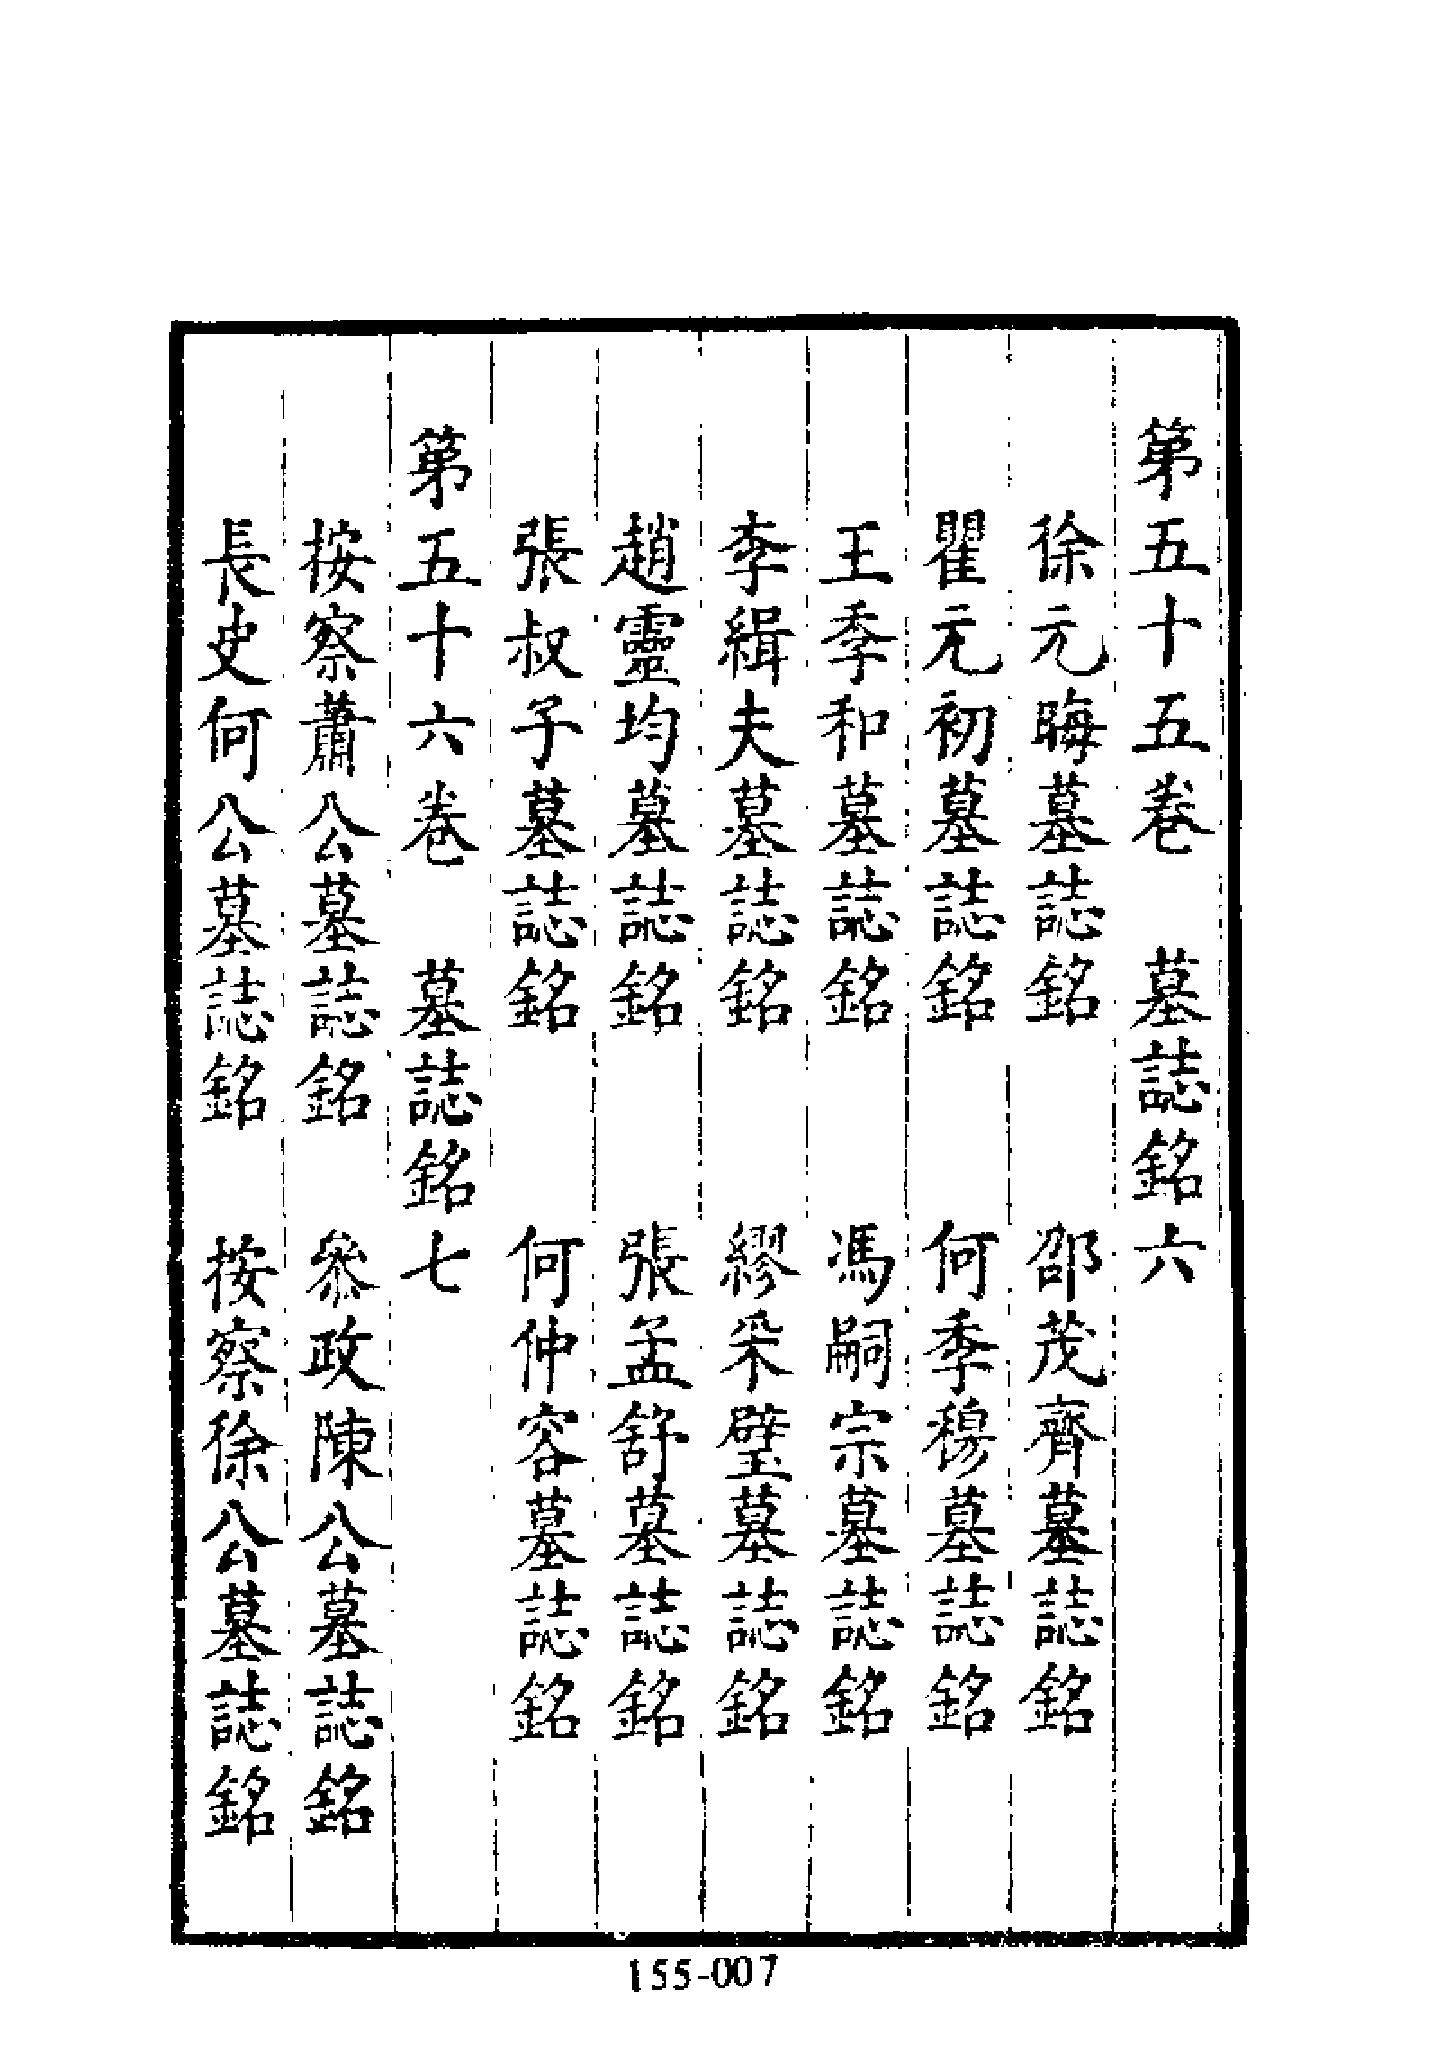 第五十五卷　墓誌銘六
徐元晦墓誌銘　邵茂齊墓誌銘
瞿元初墓誌銘　何季穆墓誌銘
王季和墓誌銘　馮嗣宗墓誌銘
李緝夫墓誌銘　繆采璧墓誌銘
趙靈均墓誌銘　張孟舒墓誌銘
張叔子墓誌銘　何仲容墓誌銘
第五十六卷　墓誌銘七
按察蕭公墓誌銘　參政陳公墓誌銘
長史何公墓誌銘　按察徐公墓誌銘
155-007